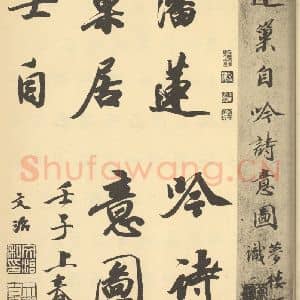 蓮巢自吟詩意圖
夢楼識
潘蓮
巢居
士自
吟詩
意圖
壬子上春
文治
Shufawang.CN